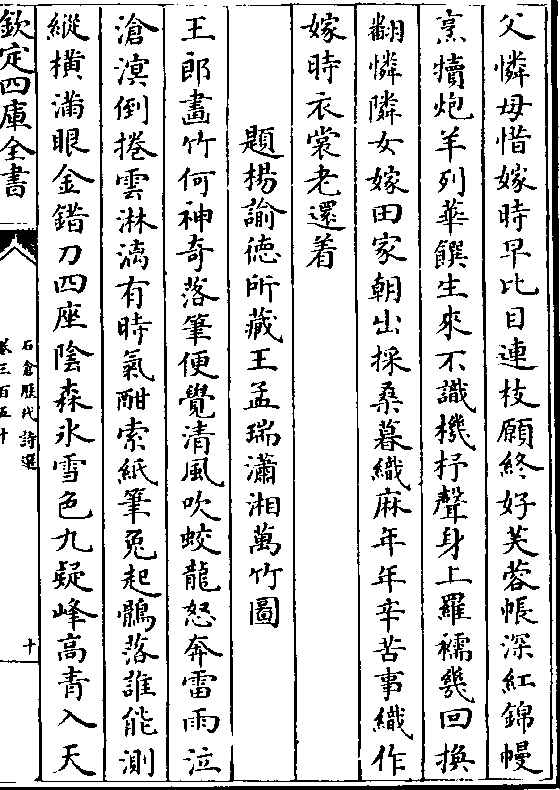 父憐母惜嫁時早比目連枝願終好芙蓉帳深紅錦幔
烹犢炮羊列華饌生來不識機杼聲身上羅襦幾回換
翻憐隣女嫁田家朝出採桑暮織麻年年辛苦事織作
嫁時衣裳老還着
題楊諭徳所藏王孟瑞瀟湘萬竹圖
王郎畫竹何神奇落筆便覺清風吹蛟龍怒奔雷雨泣
滄溟倒捲雲淋漓有時氣酣索紙筆兎起鶻落誰能測
縱横滿眼金錯刀四座陰森氷雪色九疑峰高青入天
欽定四庫全書
石倉歷代詩選
卷三百五十
十